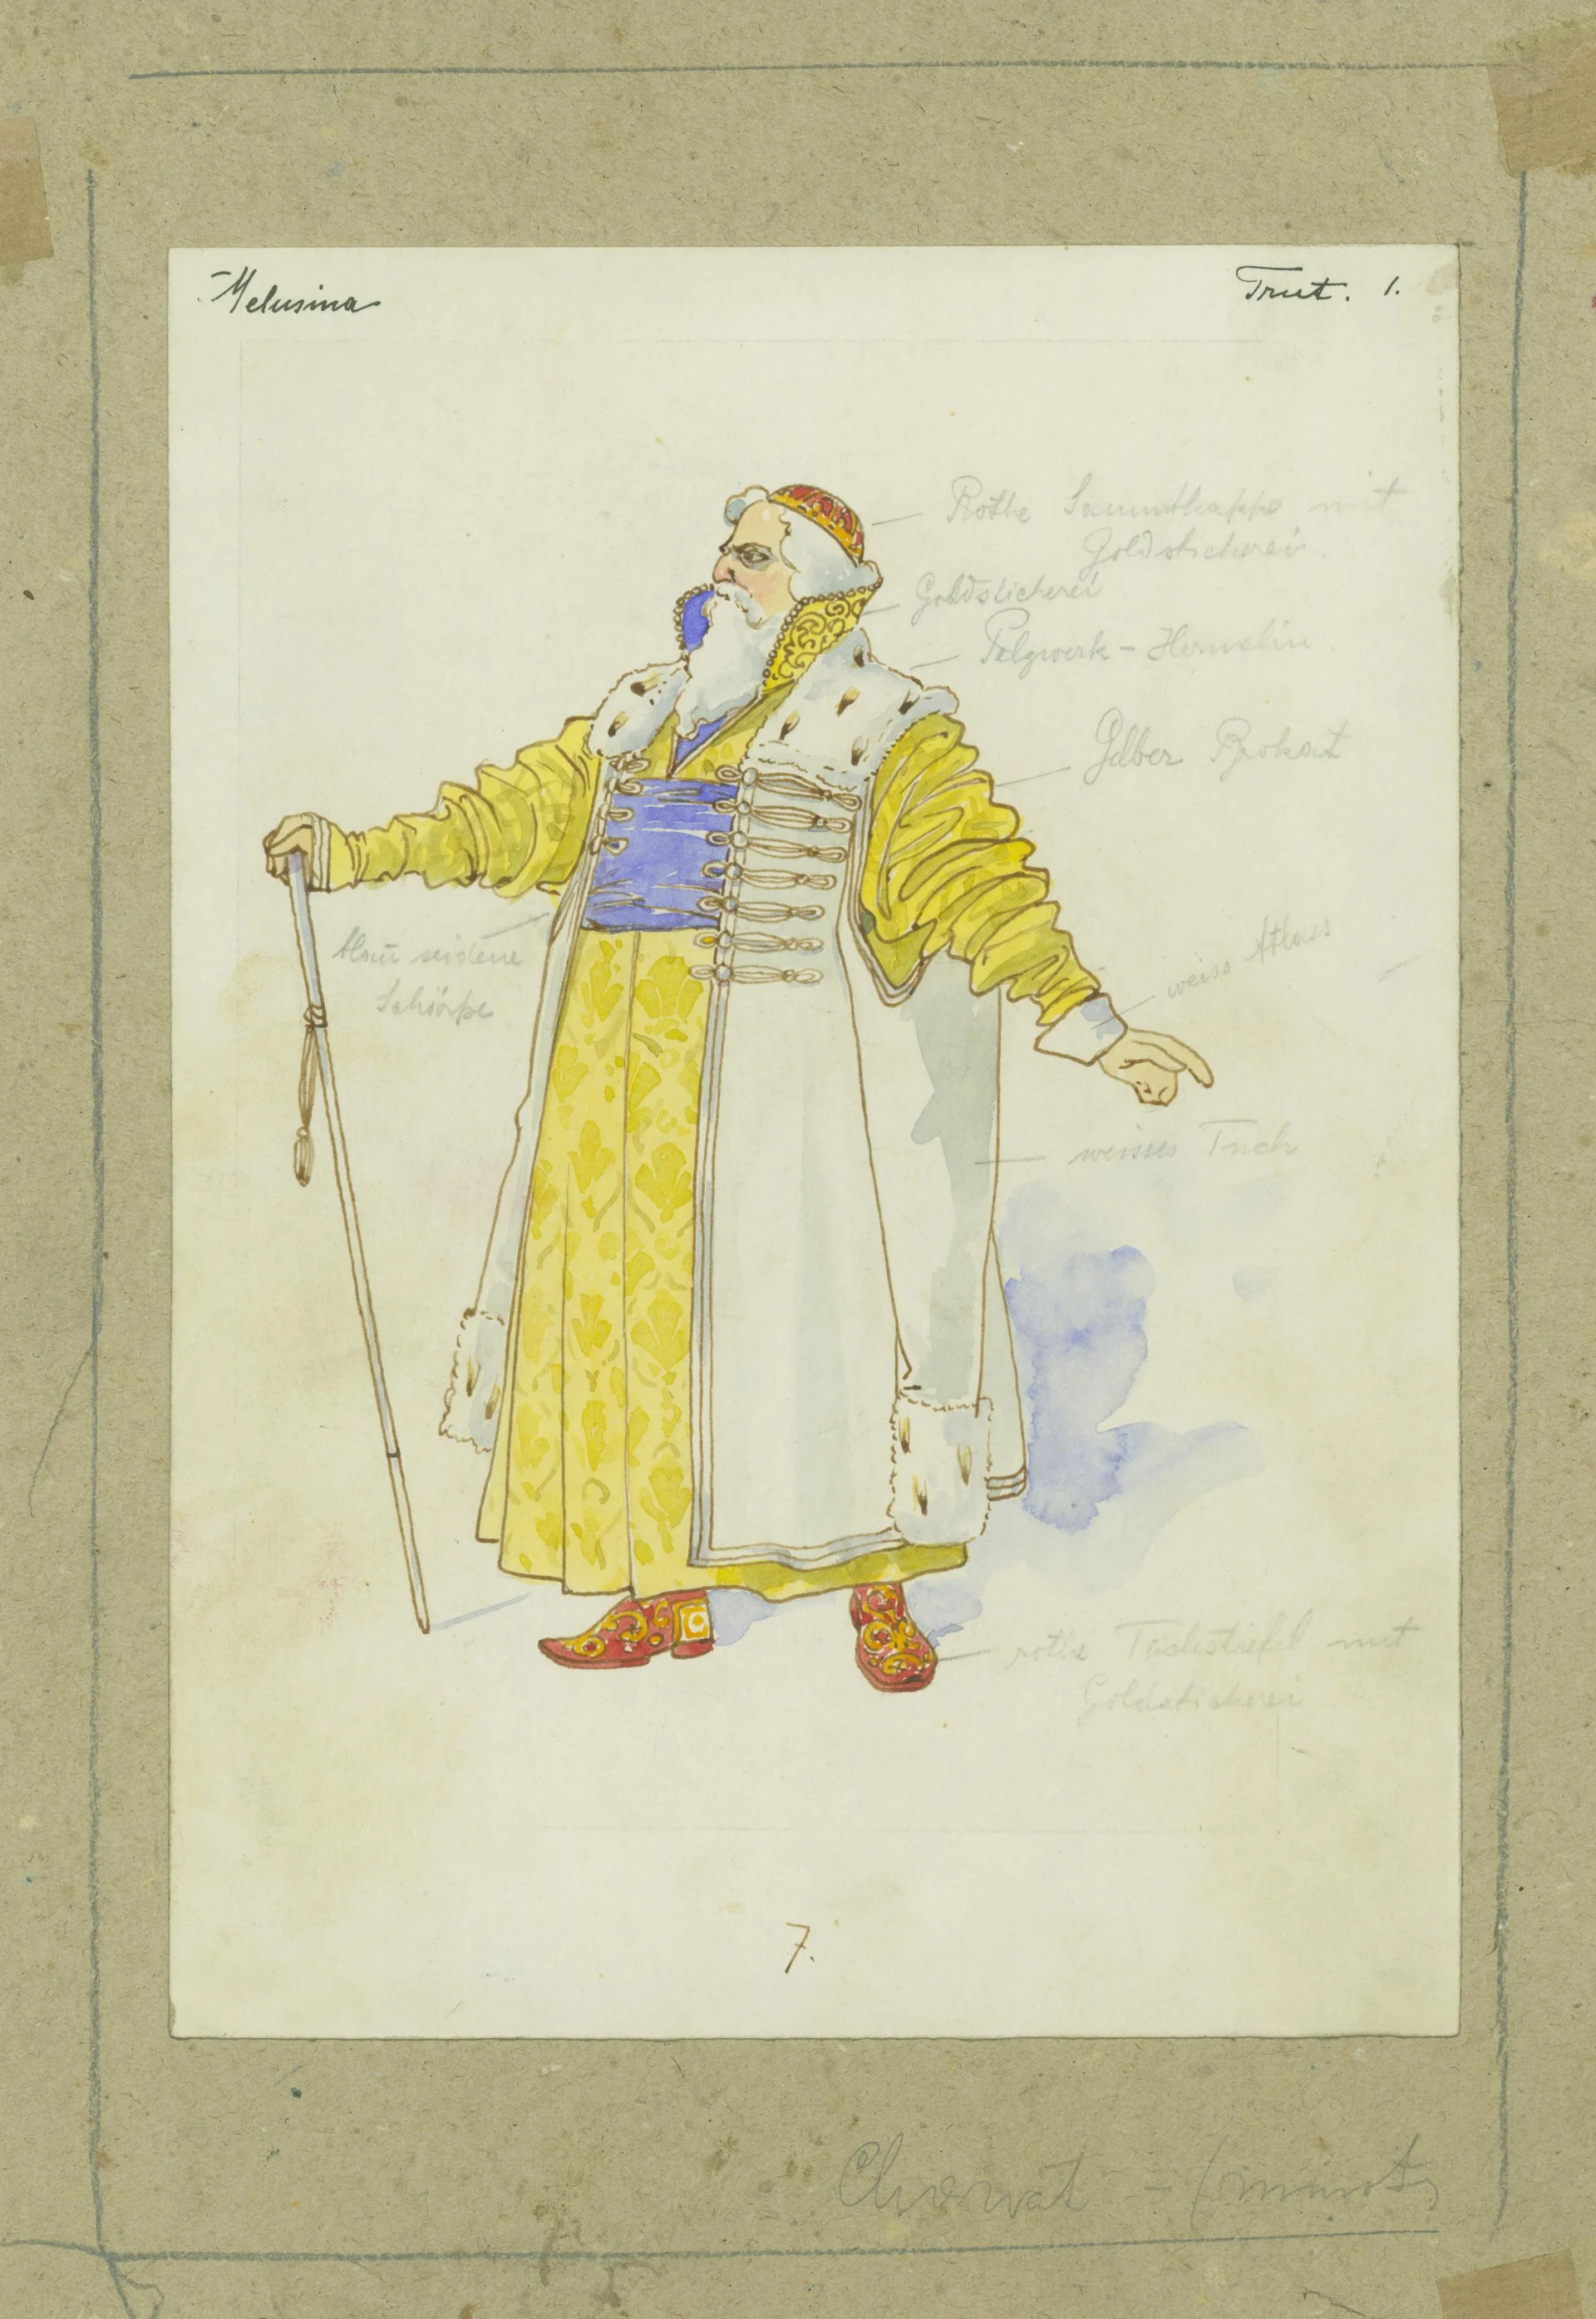 Melusina
Trut. 1.
Rothe Sammtkappe mit
Goldstickerei.
Goldstickerei
Pelzwerk - Hermelin.
Gelber Brokat
blau seidene
Schärpe
weiss Atlas
weisses Tuch
rothe Tuchstiefel mit
Goldstickerei
7.
Chorvat -